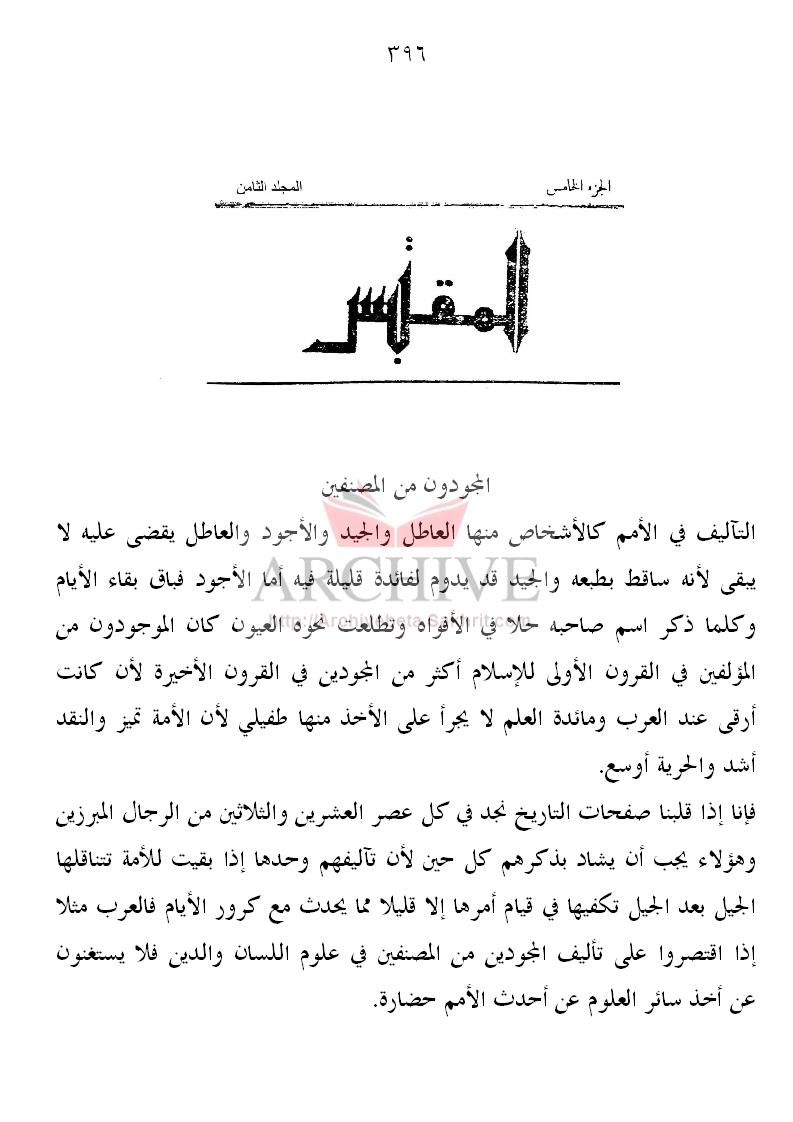 ٣٩٦
الجزء الخامس المجلد الثامن
المقتبس
المجودون من المصنفين
التآليف في الأمم كالأشخاص منها العاطل والجيد والأجود والعاطل يقضى عليه لا
يبقى لأنه ساقط بطبعه والجيد قد يدوم لفائدة قليلة فيه أما الأجود فباق بقاء الأيام
وكلما ذكر اسم صاحبه حلا في الأفواه وتطلعت نحوه العيون كان الموجودون من
المؤلفين في القرون الأولى للإسلام أكثر من المجودين في القرون الأخيرة لأن كانت
أرقى عند العرب ومائدة العلم لا يجرأ على الأخذ منها طفيلي لأن الأمة تميز والنقد
أشد والحرية أوسع.
فإنا إذا قلبنا صفحات التاريخ نجد في كل عصر العشرين والثلاثين من الرجال المبرزين
وهؤلاء يجب أن يشاد بذكرهم كل حين لأن تآليفهم وحدها إذا بقيت للأمة تتناقلها
الجيل بعد الجيل تكفيها في قيام أمرها إلا قليلا مما يحدث مع كرور الأيام فالعرب مثلا
إذا اقتصروا على تأليف المجودين من المصنفين في علوم اللسان والدين فلا يستغنون
عن أخذ سائر العلوم عن أحدث الأمم حضارة.
ARCHIVE
http://Archivebeta.Sakhrit.com